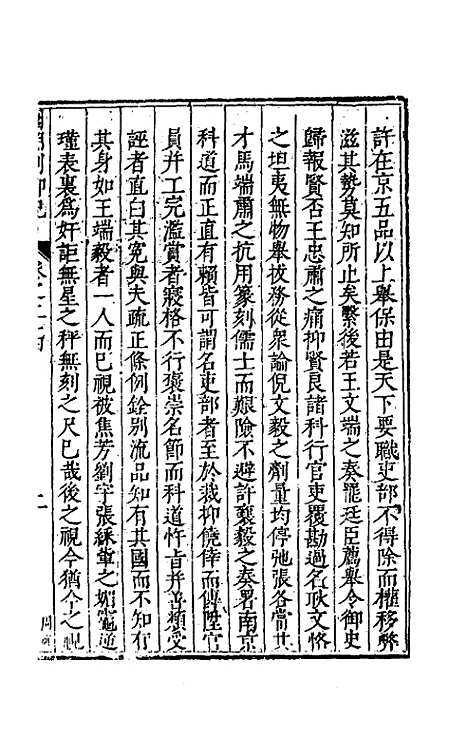 許在京五品以上舉保由是天下要職吏部不得除而權移弊
滋其勢莫知所止矣繫後若王文端之奏罷廷臣薦舉令御史
歸報賢否王忠肅之痛抑賢良諸科行官吏覆勘過名耿文恪
之坦夷無物舉拔務從衆論倪文毅之劑量均停弛張各當其
才馬端肅之抗用篆刻儒士而艱險不避許襄毅之奏署南京
科道而正直有賴皆可謂名吏部者至於裁抑僥倖而傳陞官
員并工完濫賞者寢格不行褒崇名節而科道忤旨并善類受
誣者直白其冤與夫疏正條例銓别流品知有其國而不知有
其身如王端毅者一人而已視被焦芳劉宇張綵軰之媚竈逆
瑾表裏爲奸詎無星之秤無刻之尺已哉後之視今猶今之視